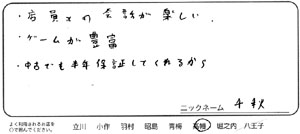 ・店員との会話が楽しい。
・ゲームが豊富
・中古でも半年保証してくれるから
ニックネーム
よく利用されるお店を
○で囲んでください。
立川 小作 羽村 昭島 青梅 高幡 堀之内 八王子